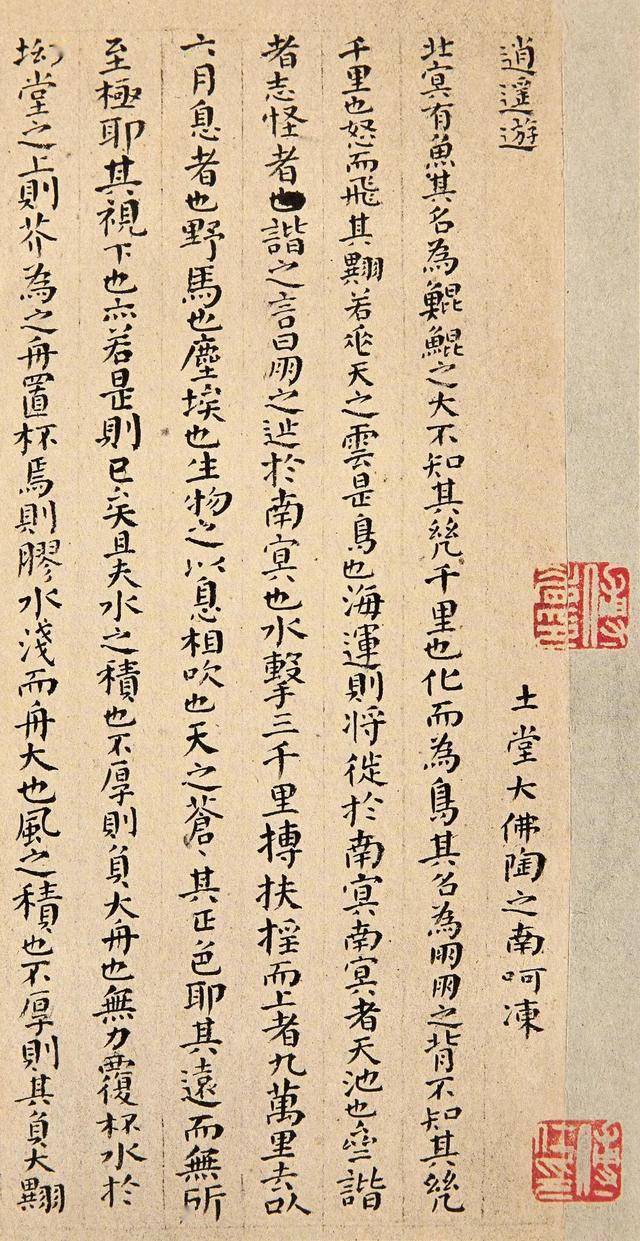 逍遙遊
土堂大佛陶之南呵凍
北冥有魚其名為鯤鯤之大不知其幾千里也化而為鳥其名為朋朋之背不知其幾
千里也怒而飛其翼若垂天之雲是鳥也海運則將徙於南冥南冥者天池也齊諧
者志怪者也諧之言曰朋之徙於南冥也水擊三千里摶扶搖而上者九萬里去以
六月息者也野馬也塵埃也生物之以息相吹也天之蒼〻其正色耶其遠而無所
至極耶其視下也亦若是則已矣且夫水之積也不厚則負大舟也無力覆杯水於
坳堂之上則芥為之舟置杯焉則膠水淺而舟大也風之積也不厚則其負大翼